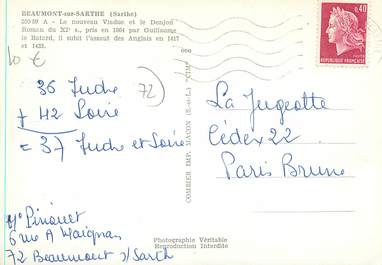 BEAUMONT-sur-SARTHE (Sarthe)
250-59 A - Le nouveau Viaduc et le Donjon
Roman du XIe s., pris en 1064 par Guillaume
le Batard, il subit l'assaut des Anglais en 1417
et 1433.
10 €
36 Indre
72
+ 42 Loire
= 37 Indre et Loire
0,40
REPUBLIQUE FRANÇAISE
La Jugeotte
Cédex 22
Paris Brune
COMBIER IMP. MACON (S.-et-L.) "CIM"
6 rue A Maignan
72 Beaumont s/ Sarth
Photographie Véritable
Reproduction Interdite